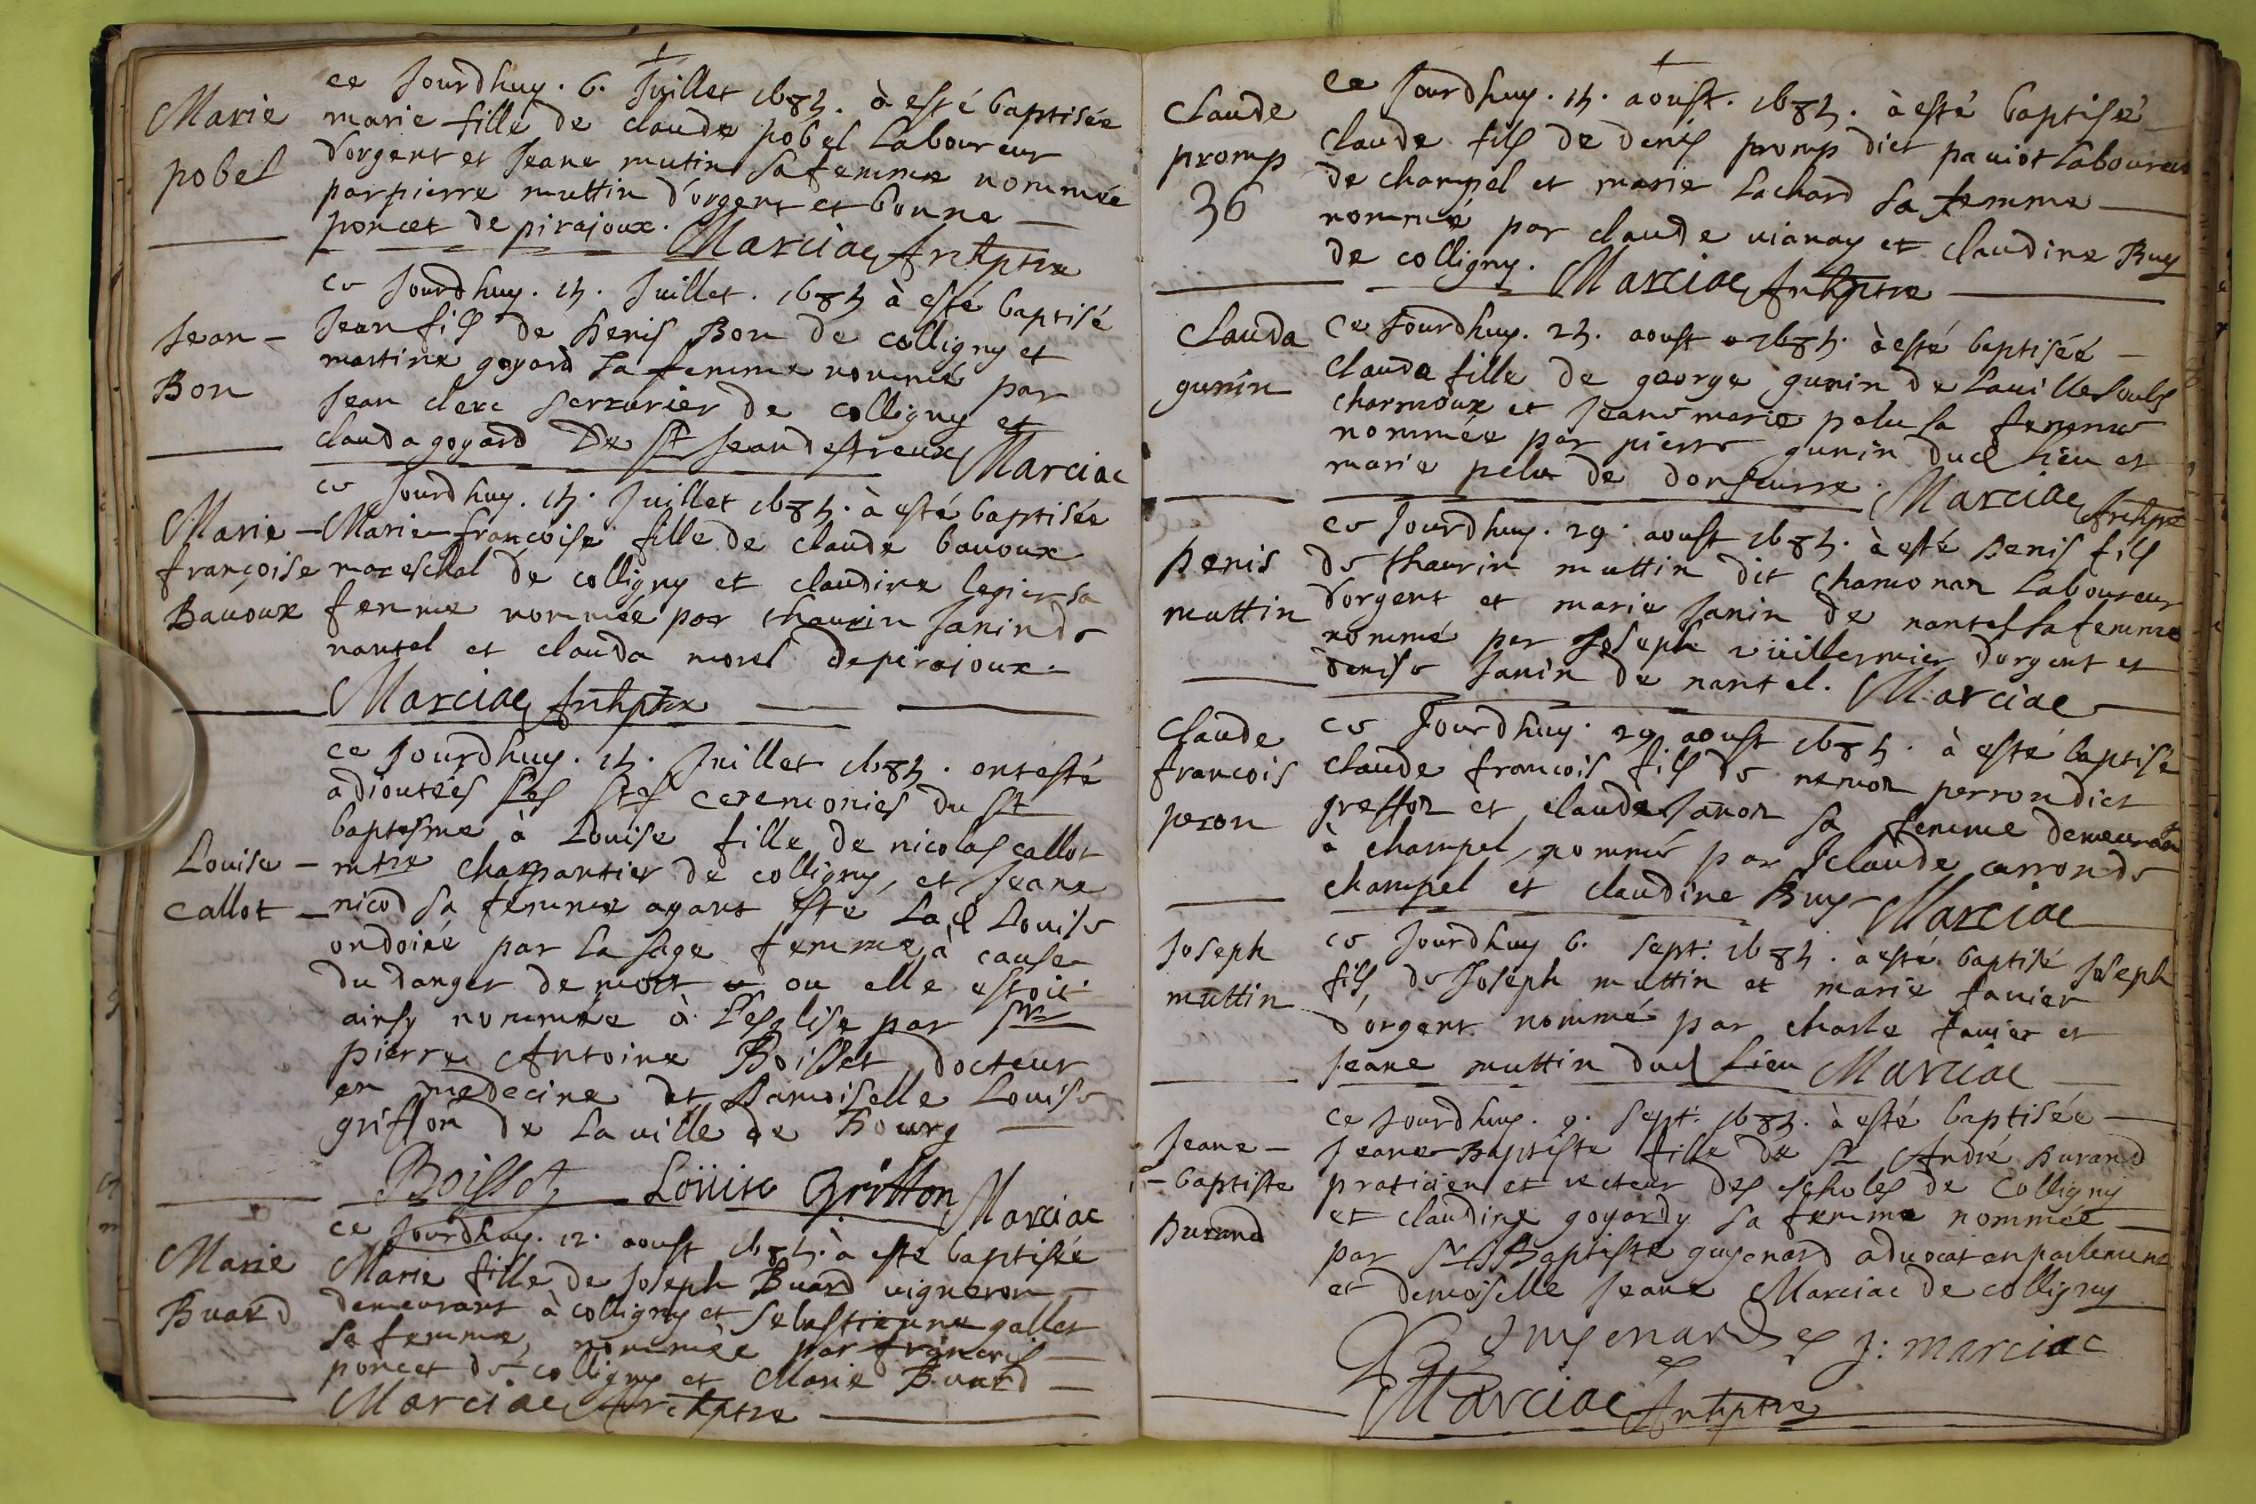 Marie
pobel
ce Jourdhuy. 6. Juillet 1684. à esté baptisée
marie fille de claude pobel Laboureur
d'orgent et Jeane mutin sa femme nommée
par pierre muttin d'orgent et bonne
poncet de pirajoux. Marciac Archptre
Jean –
Bon
ce Jourdhuy. 14. Juillet. 1684 à esté baptisé
Jean fils de Denis Bon de colligny et
martine goyard sa femme nommé par
Jean clerc serrurier de colligny et
clauda goyard De St Jean destreux Marciac
Marie –
françoise
Bauoux
ce Jourdhuy. 14. Juillet 1684. à esté baptisée
Marie francoise fille de claude bauoux
mareschal de colligny et claudine legier sa
femme nommée par thaurin Janin de
nantel et clauda morel de pirajoux.
Marciac Archptre
Louise –
Callot –
ce Jourdhuy. 14. Juillet 1684. ont esté
adioutées Les Stes ceremonies du St
baptesme à Louise fille de nicolas callot
mtre charpantier de colligny, et Jeane
nicod sa femme ayant esté Lad Louise
ondoiée par la sage femme à cause
du danger de mort ou elle estoit
ainsy nommée à L'esglise par Sr
pierre Antoine Boisset docteur
en medecine et Damoiselle Louise
griffon de La ville de Bourg
Boisset Loüise Griffon Marciac
Marie
Buard
ce Jourdhuy. 12. aoust 1684. à esté baptisée
Marie fille de Joseph Buard uigneron
demeurant à colligny et sebastienne gallet
sa femme, nommée par francois
poncet de colligny et Marie Buard
Marciac Archptre
Claude
promp
36
ce Jourdhuy. 14. aoust. 1684. à esté baptisé
claude fils de denis promp dict pauiot laboureur
de champel et marie Lachard sa femme
nommé par claude uianay et claudine Buy
de colligny. Marciac Archptre
Clauda
gunin
Ce Jourdhuy. 24. aoust 1684. à esté baptiséé
Clauda fille de george gunin de Lauille soubs
charmoux et Jeane marie pelu sa femme
nommée par pierre gunin dud Lieu et
marie pelu de donseurre. Marciac Archptre
Denis
muttin
ce Jourdhuy. 29. aoust 1684. à esté Denis fils
de thaurin muttin dit chamonan Laboureur
d'orgent et marie Janin de nantel sa femme
nommé par Joseph vüillermier d'orgent et
denise Janin de nantel. Marciac
Claude
francois
peron
ce Jourdhuy. 29 aoust 1684. à esté baptisé
claude francois fils de perron dict
greffon et clauda Janon sa femme demeurant
à champel, nommé par claude carron de
champel et claudine Buy Marciac
Joseph
muttin
ce Jourdhuy 6. sept. 1684. à esté baptisé Joseph
fils de Joseph muttin et marie fauier
d'orgent nommé par charle fauier et
Jeane muttin dud Lieu Marciac
Jeane –
– baptiste
Durand
ce Jourdhuy. 9. sept. 1684. à esté baptisée
Jeane Baptiste fille de Sr André Durand
praticien et recteur des escholes de Colligny
et claudine goyardy sa femme nommée
par Sr Baptiste guyenard aduocat en parlement
et demoiselle Jeane Marciac de colligny
Guyenard J: marciac
Marciac Archptre